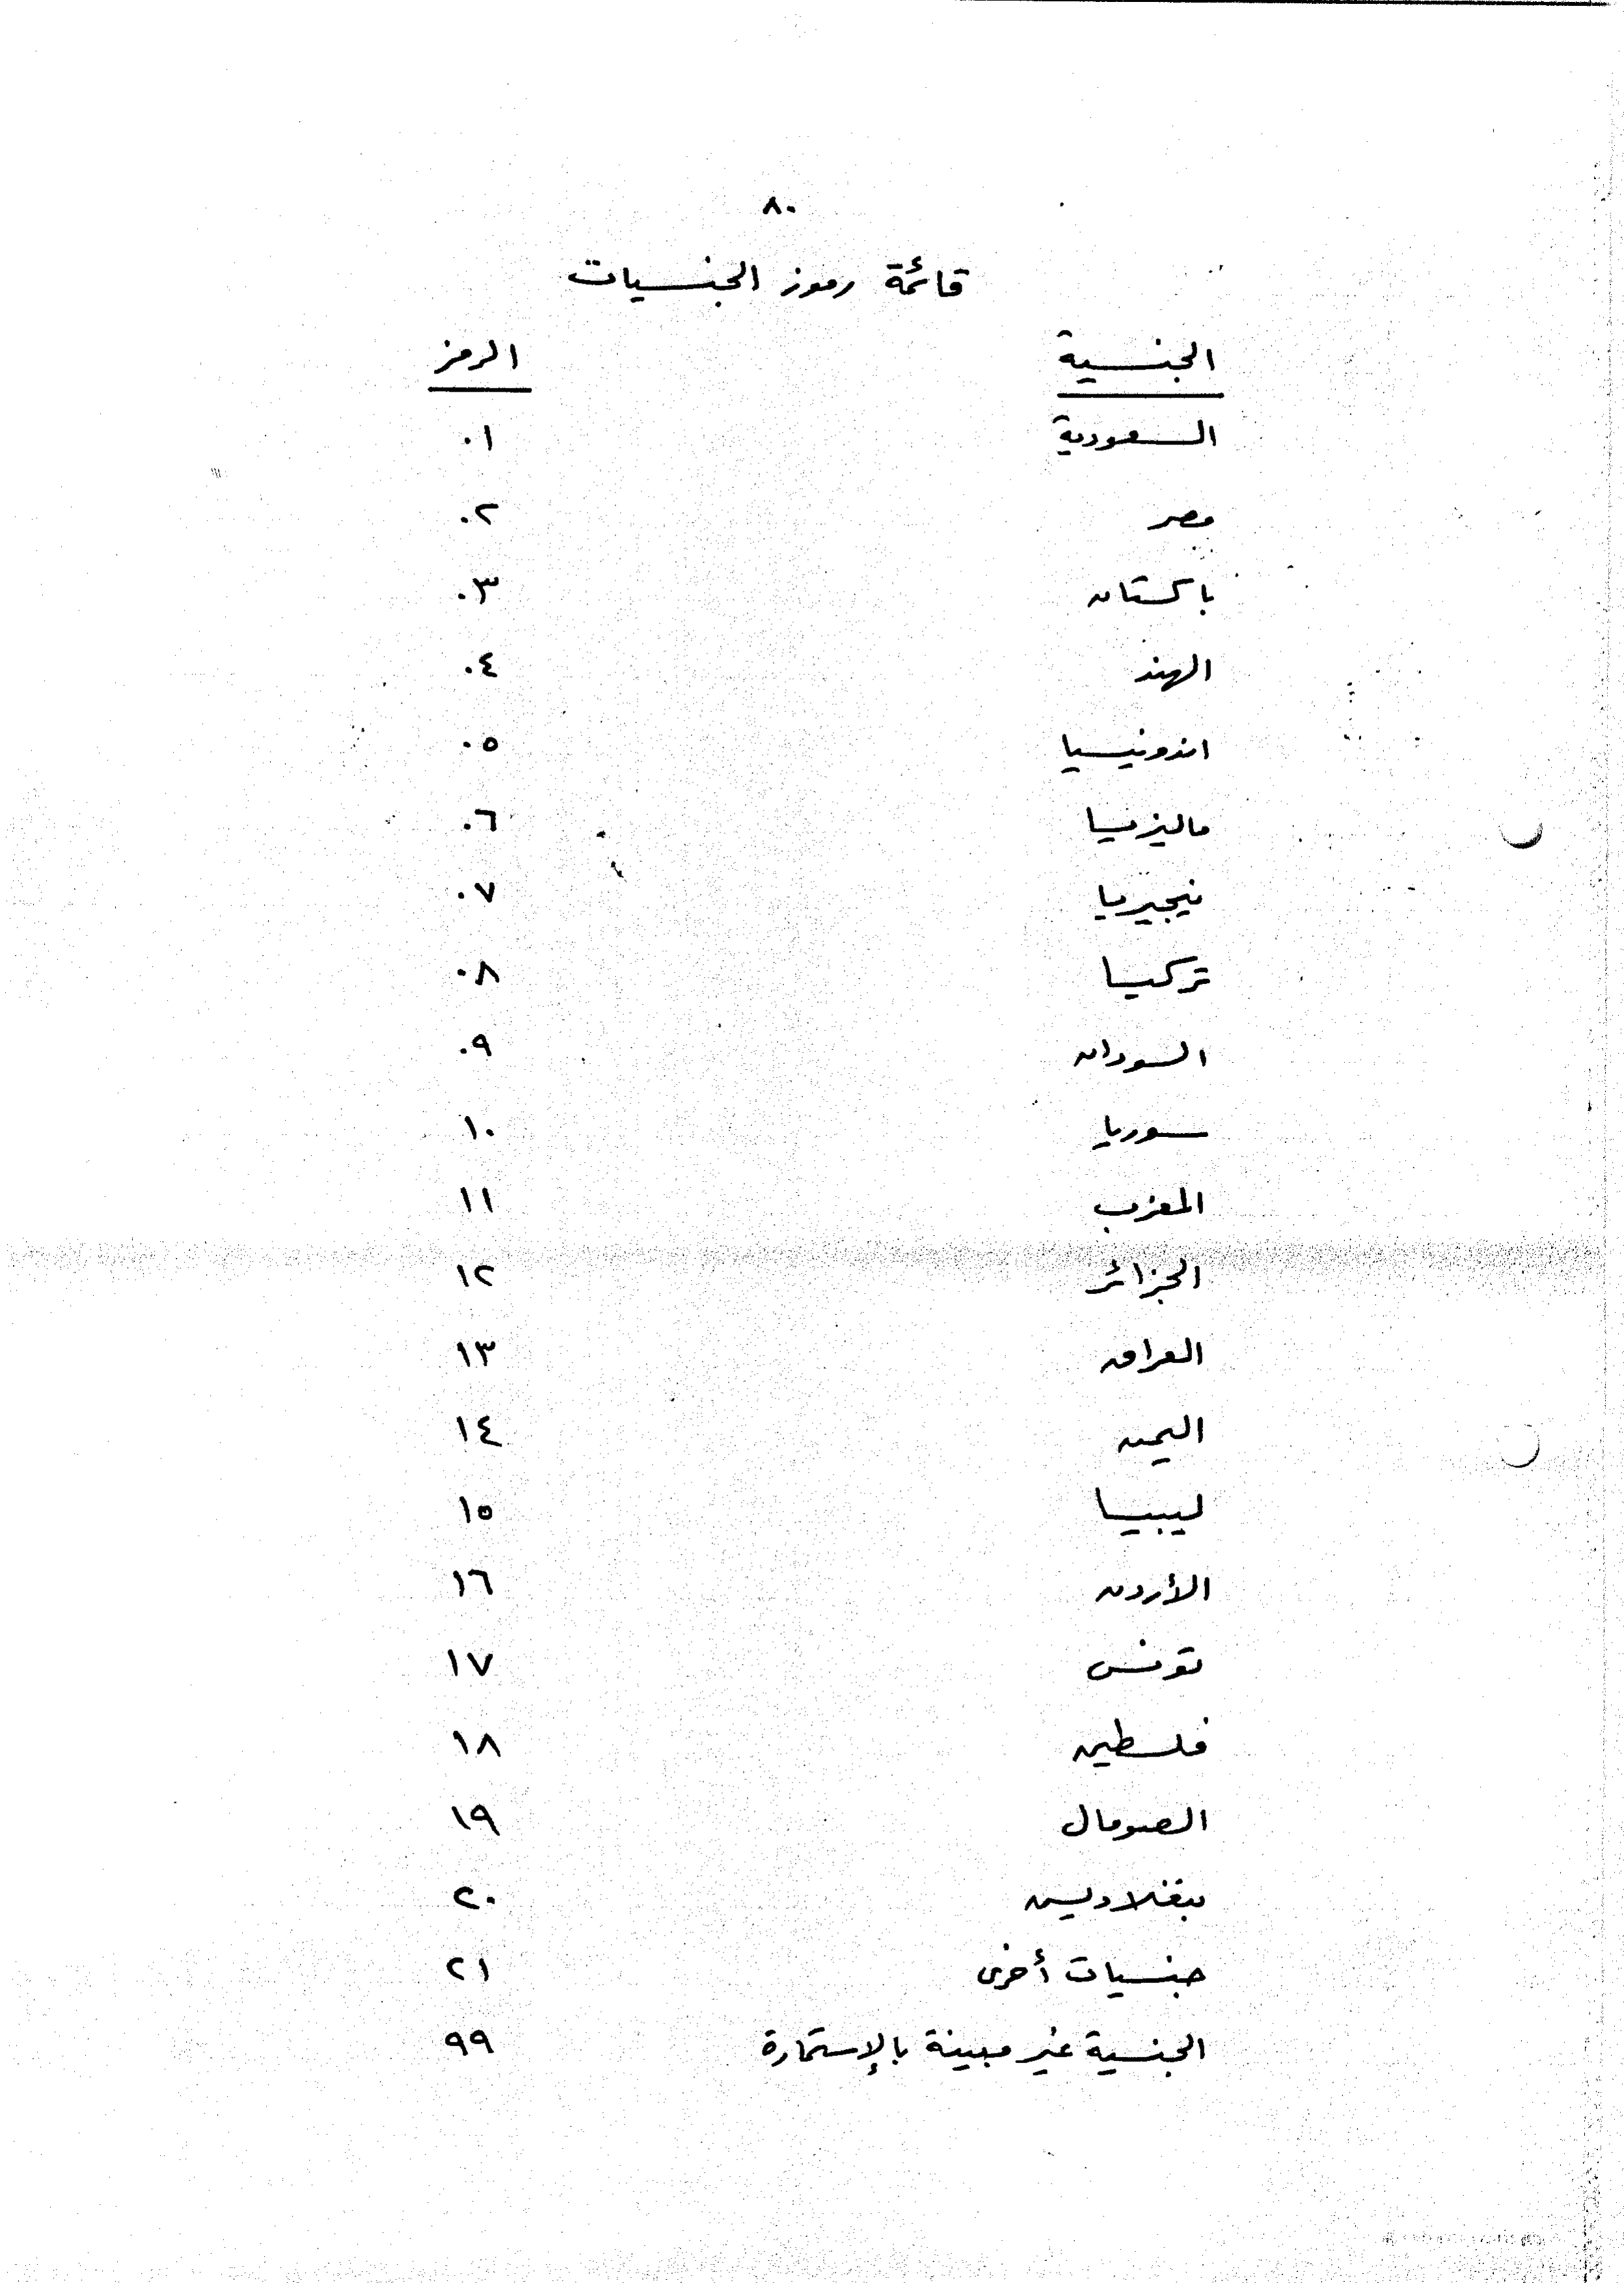 ٨٠
قائمة رموز الجنسيات
الجنسية الرمز
السعودية ٠١
مصر ٠٢
باكستان ٠٣
الهند ٠٤
اندونيسيا ٠٥
ماليزيا ٠٦
نيجيريا ٠٧
تركيا ٠٨
السودان ٠٩
سوريا ١٠
المغرب ١١
الجزائر ١٢
العراق ١٣
اليمن ١٤
ليبيا ١٥
الأردن ١٦
تونس ١٧
فلسطين ١٨
الصومال ١٩
بنغلاديش ٢٠
جنسيات أخرى ٢١
الجنسية غير مبينة بالإستمارة ٩٩